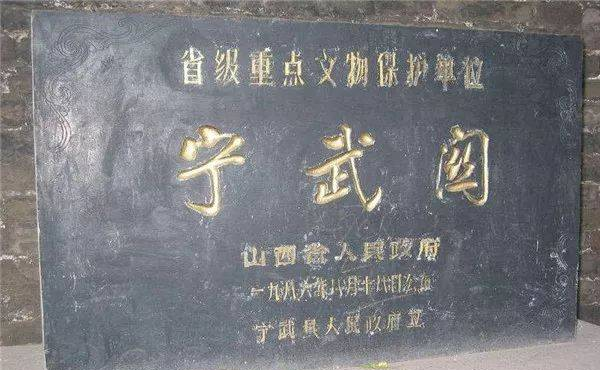 省级重点文物保护单位
宁武阁
山西省人民政府
一九八六年八月十八日公布
宁武县人民政府立